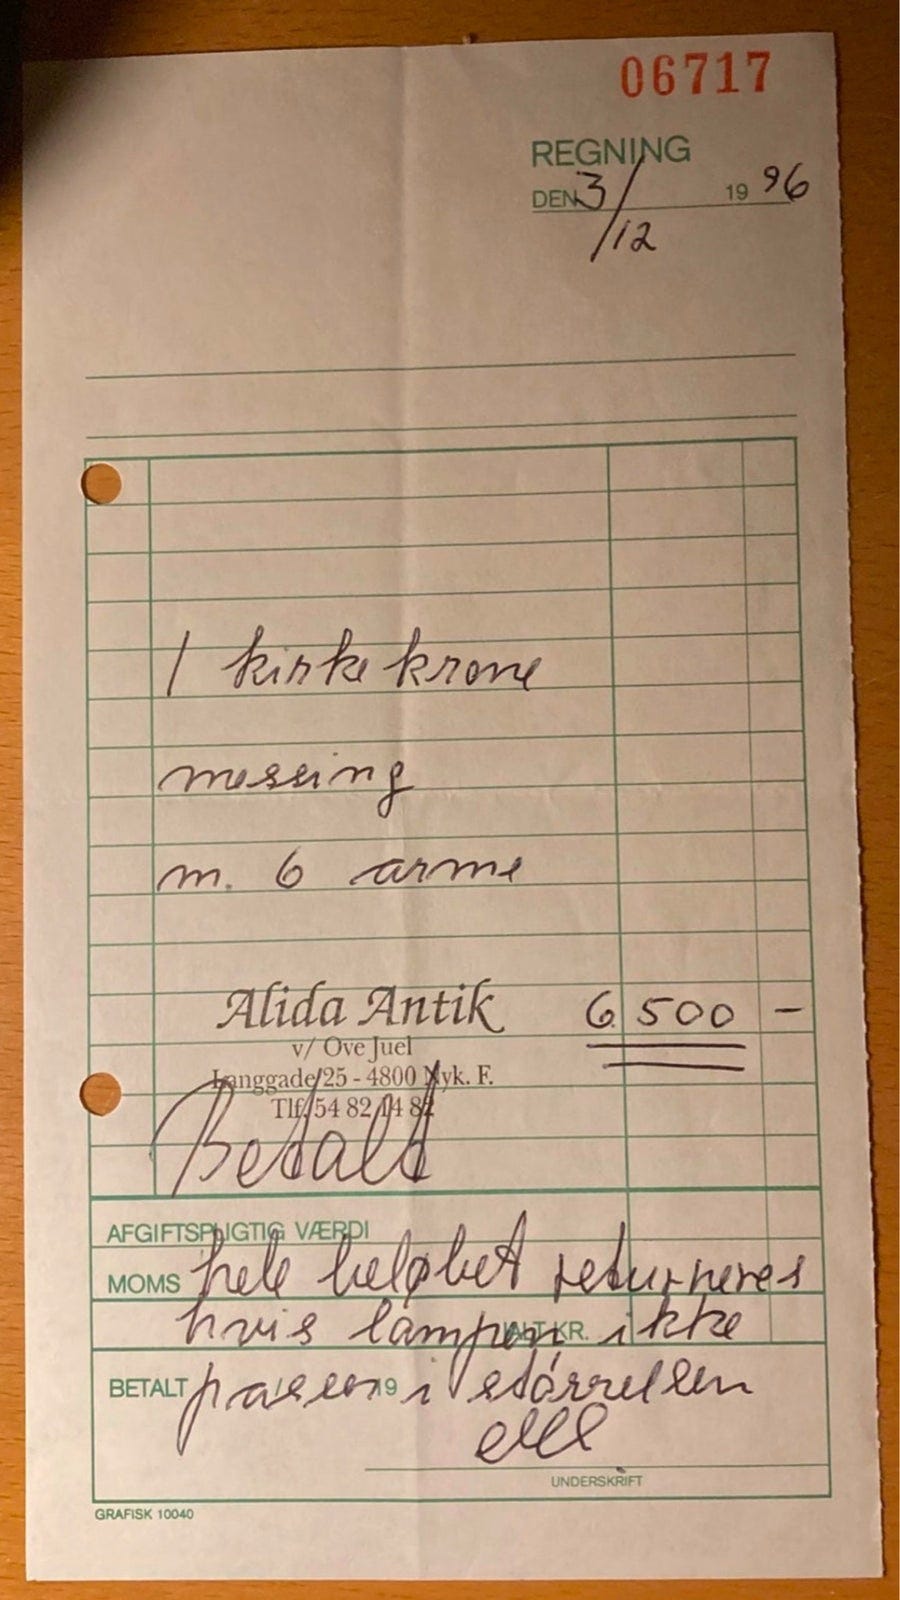 06717
REGNING
DEN 3/12 1996
1 kirkekrone
messing
m. 6 arme
Alida Antik
6.500 -
v/ Ove Juel
Langgade 25 - 4800 Nyk. F.
Tlf. 54 82 14 82
Betalt
AFGIFTSPLIGTIG VÆRDI
MOMS
hele beløbet returneres
hvis lampen ikke
IALT KR.
BETALT 19
passer i størrelsen
UNDERSKRIFT
GRAFISK 10040